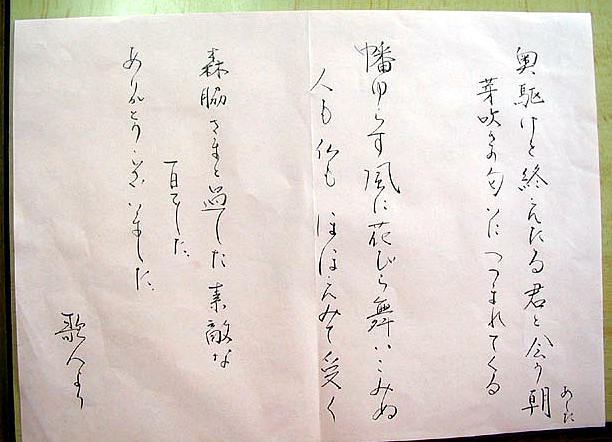 奥駆けを終えたる君と会う朝
あした
芽吹きの匂いにつつまれてくる
幡ゆらす風に花びら舞いこみぬ
人も仏もほほえみて受く
森脇さまと過した素敵な
一日でした。
ありがとうございました。
歌人より